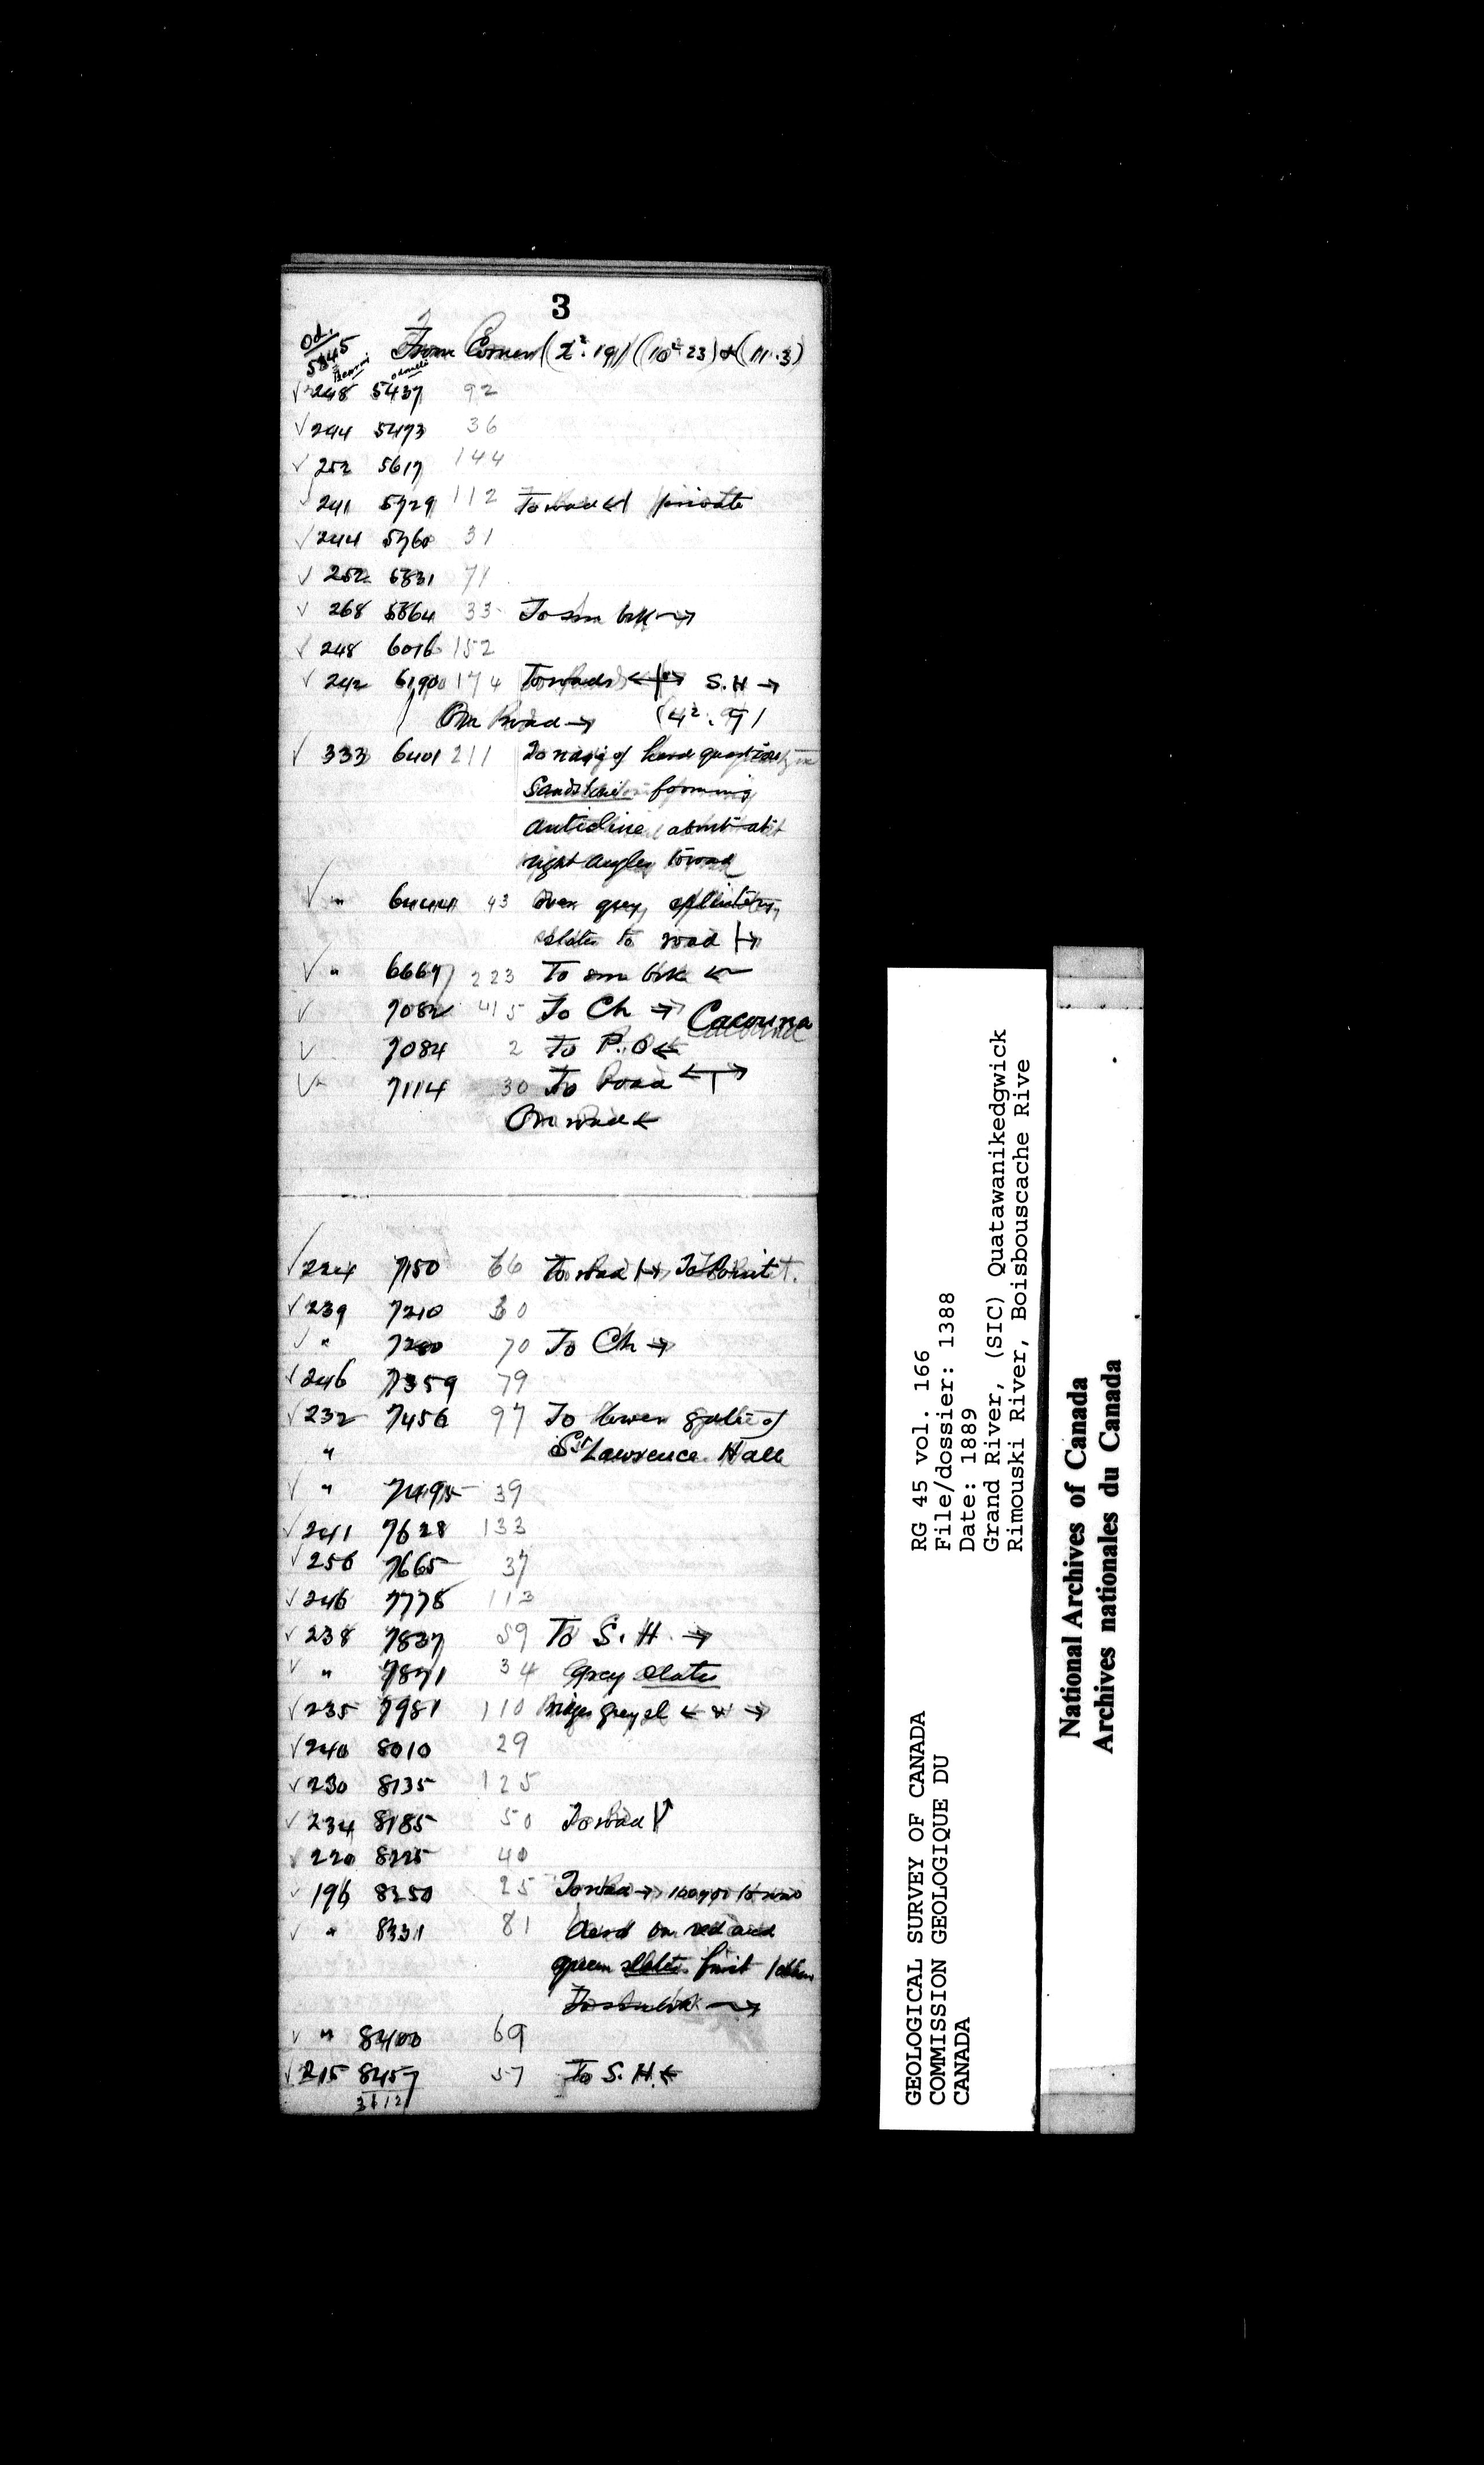 3
Od.
5345 From Corner (2².19) (10².23) & (11.3)
√ 248 5437 92
√ 244 5473 36
√ 252 5617 144
√ 241 5729 112 To road ← private
√ 244 5760 31
√ 252 5831 71
√ 268 5864 33 To sm brk →
√ 248 6016 152
√ 242 6190 174 To roads ←|→ S.H →
On Road → (4².9)
√ 333 6401 211 of hard
Sandstone forming
anticline about at
right angles to road
√ " 6444 43 over grey, splintery,
slates to road |→
√ " 6667 223 To sm brk ←
√ 7082 415 To Ch → Cacouna
√ 7084 2 To P.O ←
√ " 7114 30 To Road ←T→
On road ←
√ 224 7150 66 To road |→ To Point.
√ 239 7210 30
√ " 7280 70 To Ch →
√ 246 7359 79
√ 232 7456 97 To lower gate of
" St Lawrence Hall
√ " 7495 39
√ 241 7628 133
√ 256 7665 37
√ 246 7778 113
√ 238 7837 59 To S.H. →
√ " 7871 34 Grey slates
√ 235 7981 110 grey sl ← & →
√ 240 8010 29
√ 230 8135 125
√ 234 8185 50 To road
√ 220 8225 40
√ 196 8250 25 To road →
√ " 8331 81 on red and
green slates
→
√ " 8400 69
√ 215 8457 57 To S.H. ←
3112
RG 45 vol. 166
File/dossier: 1388
Date: 1889
Grand River, (SIC) Quatawanikedgwick
Rimouski River, Boisbouscache Rive
GEOLOGICAL SURVEY OF CANADA
COMMISSION GEOLOGIQUE DU
CANADA
National Archives of Canada
Archives nationales du Canada